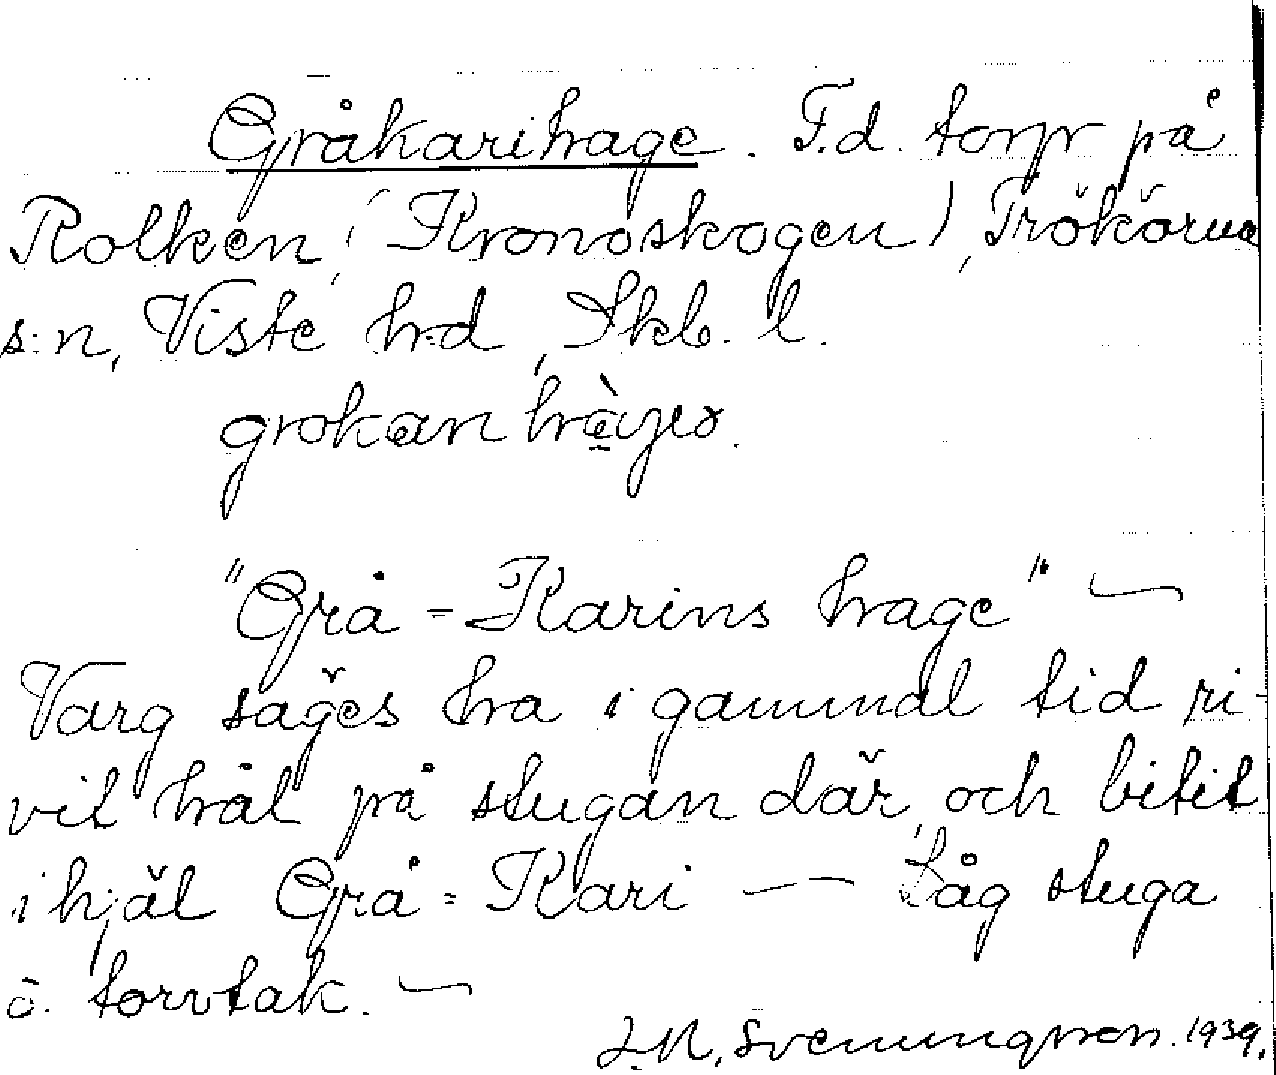 Gråkarihage. F.d. torp på
Rolken (Kronoskogen), Trökörna
s:n, Viste hd, Skb. l.
grokan hàyes.
"Grå-Karins hage" —
Varg säges ha i gammal tid ri-
vit hål på stugan där, och bitit
ihjäl Grå-Kari — — Låg stuga
o. torvtak. —
J.M. Svenungsson. 1939.